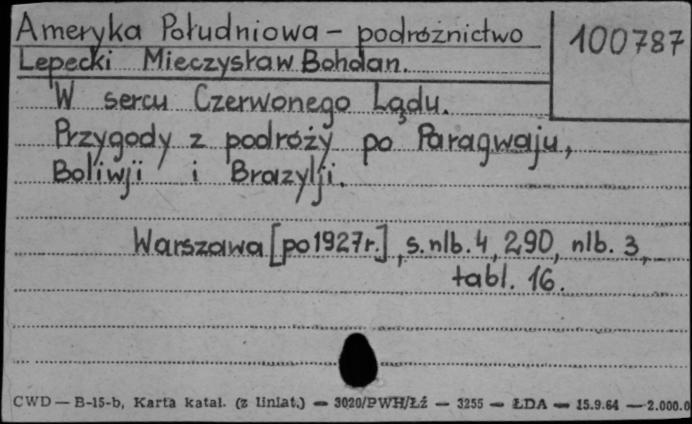 Ameryka Południowa - podróżnictwo
100787
Lepecki Mieczysław Bohdan.
W sercu Czerwonego Lądu.
Przygody z podróży po Paragwaju,
Boliwji i Brazylji.
Warszawa [po 1927r.], s. nlb. 4, 290, nlb. 3,
tabl. 16.
CWD — B-15-b, Karta katal. (z liniat.) — 3020/PWH/Łź — 3255 — ŁDA — 15.9.64 — 2.000.0